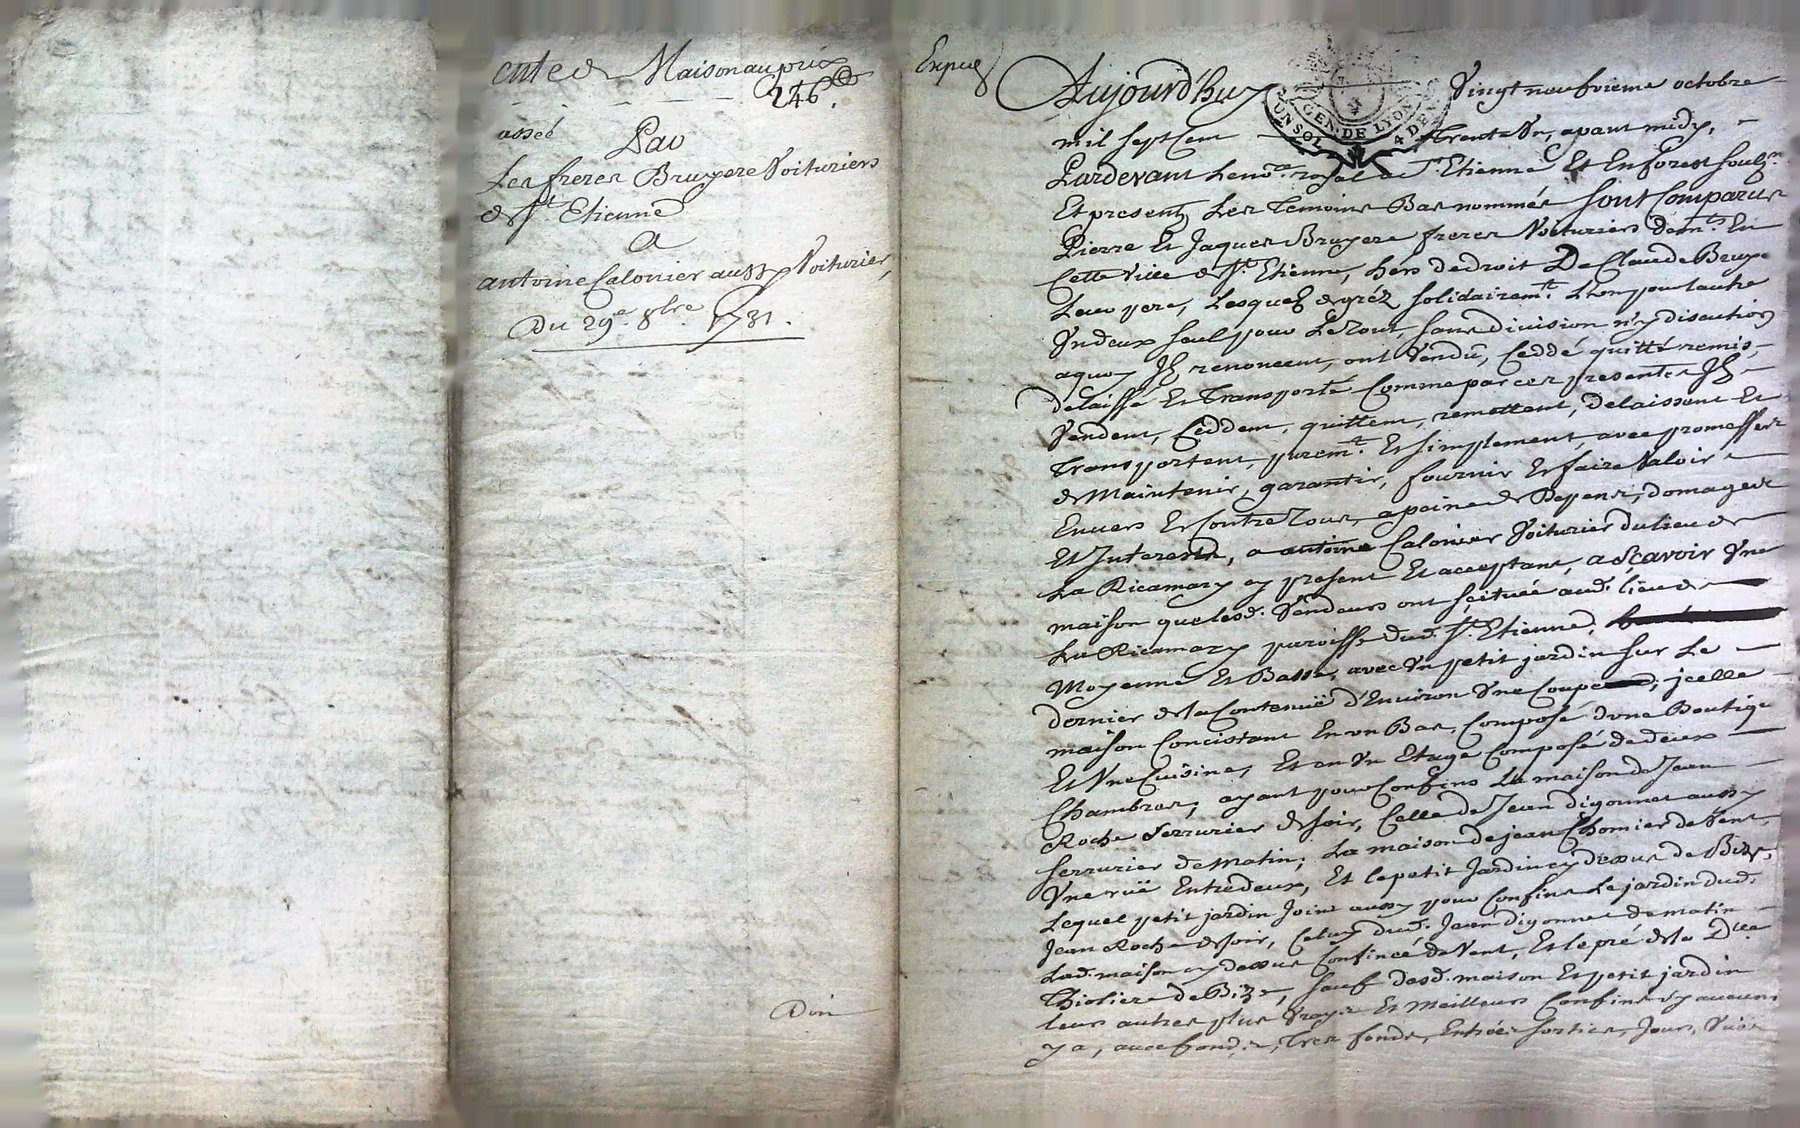 ente de Maison au prix
246.
assée
Par
Les freres Bruyere Voituriers
de St. Etienne
A
antoine Calonier aussy Voiturier,
Du 29e. 8bre 1731.
Don
Expié
Aujourd'huy Vingt neufvieme octobre
GEN. DE LYON
UN SOL 4 DEN
mil sept cent trente Un, avant midy,
Pardevant Le nore. royal à St. Etienne Et En forest soubzné.
Et presents Les Temoins Bas nommés sont Comparus
Pierre Et Jaques Bruyere freres Voituriers demts. En
Cette Ville de St. Etienne, hers de droit De Claude Bruyere
Leur pere, Lesquels de gréz solidairemt. L'un pour l'autre
Un deux seul pour Le Tout, sans division n'y discution
a quoy Ils renoncent, ont Vendu, Ceddé quitté remis,
delaissé Et Transporté Comme par ces presentes Ils
Vendent, Ceddent, quittent, remettent, delaissent Et
Transportent, puremt. Et simplement, avec promesses
de Maintenir, garantir, fournir Et faire Valoir
Envers Et Contre Tous, a peine de Depens, domages
Et Interests, a antoine Calonier Voiturier du lieu de
La Ricamary cy present Et acceptant, a sçavoir Une
maison que lesd. Vendeurs ont scituée aud. lieu de
La Ricamary paroisse dud. St. Etienne,
Moyenne Et Basse, avec Un petit jardin sur Le
dernier de la Contenuë d'Environ Une Coupe, jcelle
maison Concistant En un Bas, Composé d'une Boutique
Et Une Cuisine, Et en Un Etage Composé de deux
Chambres, ayant pour Confins La maison de Jean
Roche Serrurier de soir, Celle de Jean digonnet aussy
serrurier de matin, La maison de jean Chomier de Vent,
Une ruë Entredeux, Et le petit Jardin cy dessus de Bize,
Lequel petit jardin Joint aussy pour Confins Le jardin dud.
Jean Roche de soir, Celuy dud. Jean digonnet de matin
Lad. maison cy dessus Confinée de Vent, Et le pré de la Dlle
Thioliere de Bize, sauf desd. maison Et petit jardin
leurs autres plus Vrays Et Meilleurs Confins sy aucuns
y a, avec fonds, Tres fonds, Entrées sorties, Jours, Vuës